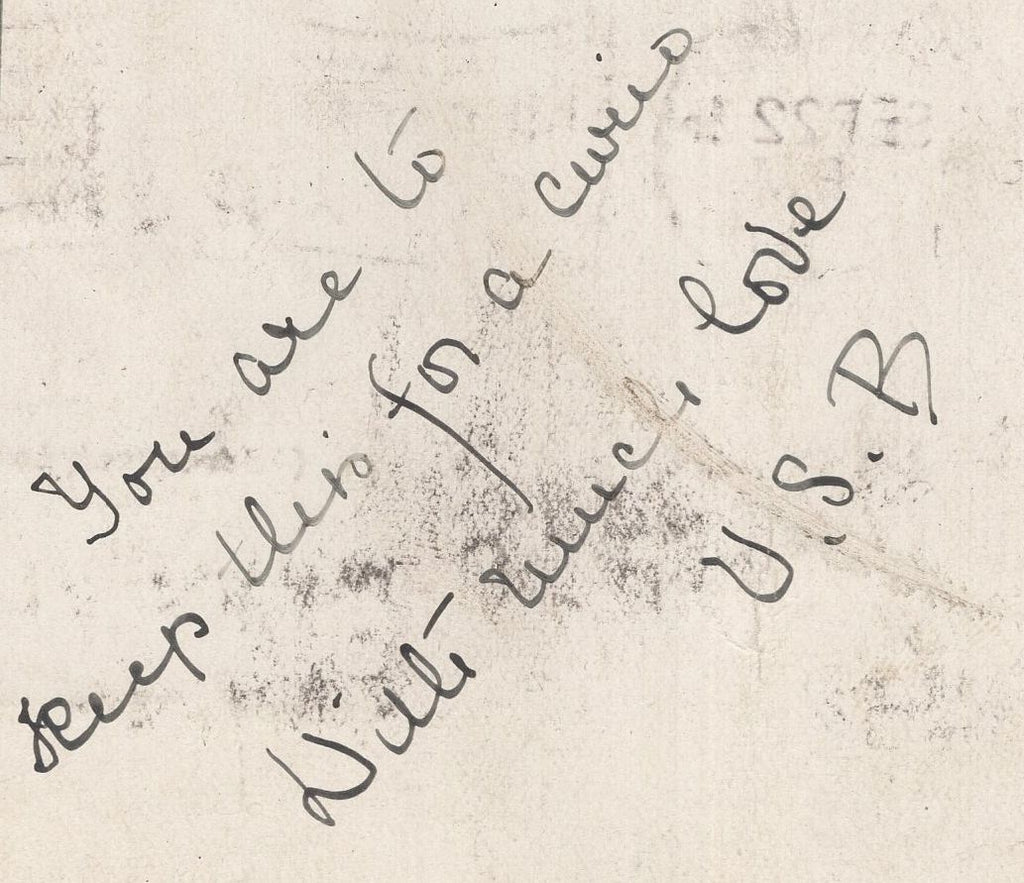 You are to
keep this for a curio
With much love
V.S.B